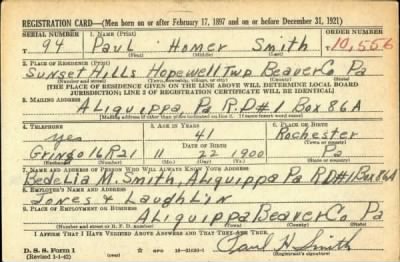 REGISTRATION CARD—(Men born on or after February 17, 1897 and on or before December 31, 1921)
SERIAL NUMBER 1. NAME (Print) ORDER NUMBER
94 Paul Homer Smith 10,556
(First) (Middle) (Last)
2. PLACE OF RESIDENCE (Print)
Sunset Hills Hopewell Twp Beaver Co Pa
(Number and street) (Town, township, village, or city) (County) (State)
[THE PLACE OF RESIDENCE GIVEN ON THE LINE ABOVE WILL DETERMINE LOCAL BOARD
JURISDICTION; LINE 2 OF REGISTRATION CERTIFICATE WILL BE IDENTICAL]
3. MAILING ADDRESS
Aliquippa, Pa R.D#1 Box 86A
[Mailing address if other than place indicated on line 2. If same insert word same]
4. TELEPHONE 5. AGE IN YEARS 6. PLACE OF BIRTH
yes 41 Rochester
DATE OF BIRTH (Town or county)
Gringo 16R21 11 22 1900 Pa
(Exchange) (Number) (Mo.) (Day) (Yr.) (State or country)
7. NAME AND ADDRESS OF PERSON WHO WILL ALWAYS KNOW YOUR ADDRESS
Bedelia M. Smith, Aliquippa Pa RD#1 Box 86A
8. EMPLOYER'S NAME AND ADDRESS
Jones & Laughlin
9. PLACE OF EMPLOYMENT OR BUSINESS
Aliquippa Beaver Co Pa
(Number and street or R. F. D. number) (Town) (County) (State)
I AFFIRM THAT I HAVE VERIFIED ABOVE ANSWERS AND THAT THEY ARE TRUE.
D. S. S. Form 1
(Revised 1-1-42) GPO 16—21630-1 Paul H Smith
(Registrant's signature)